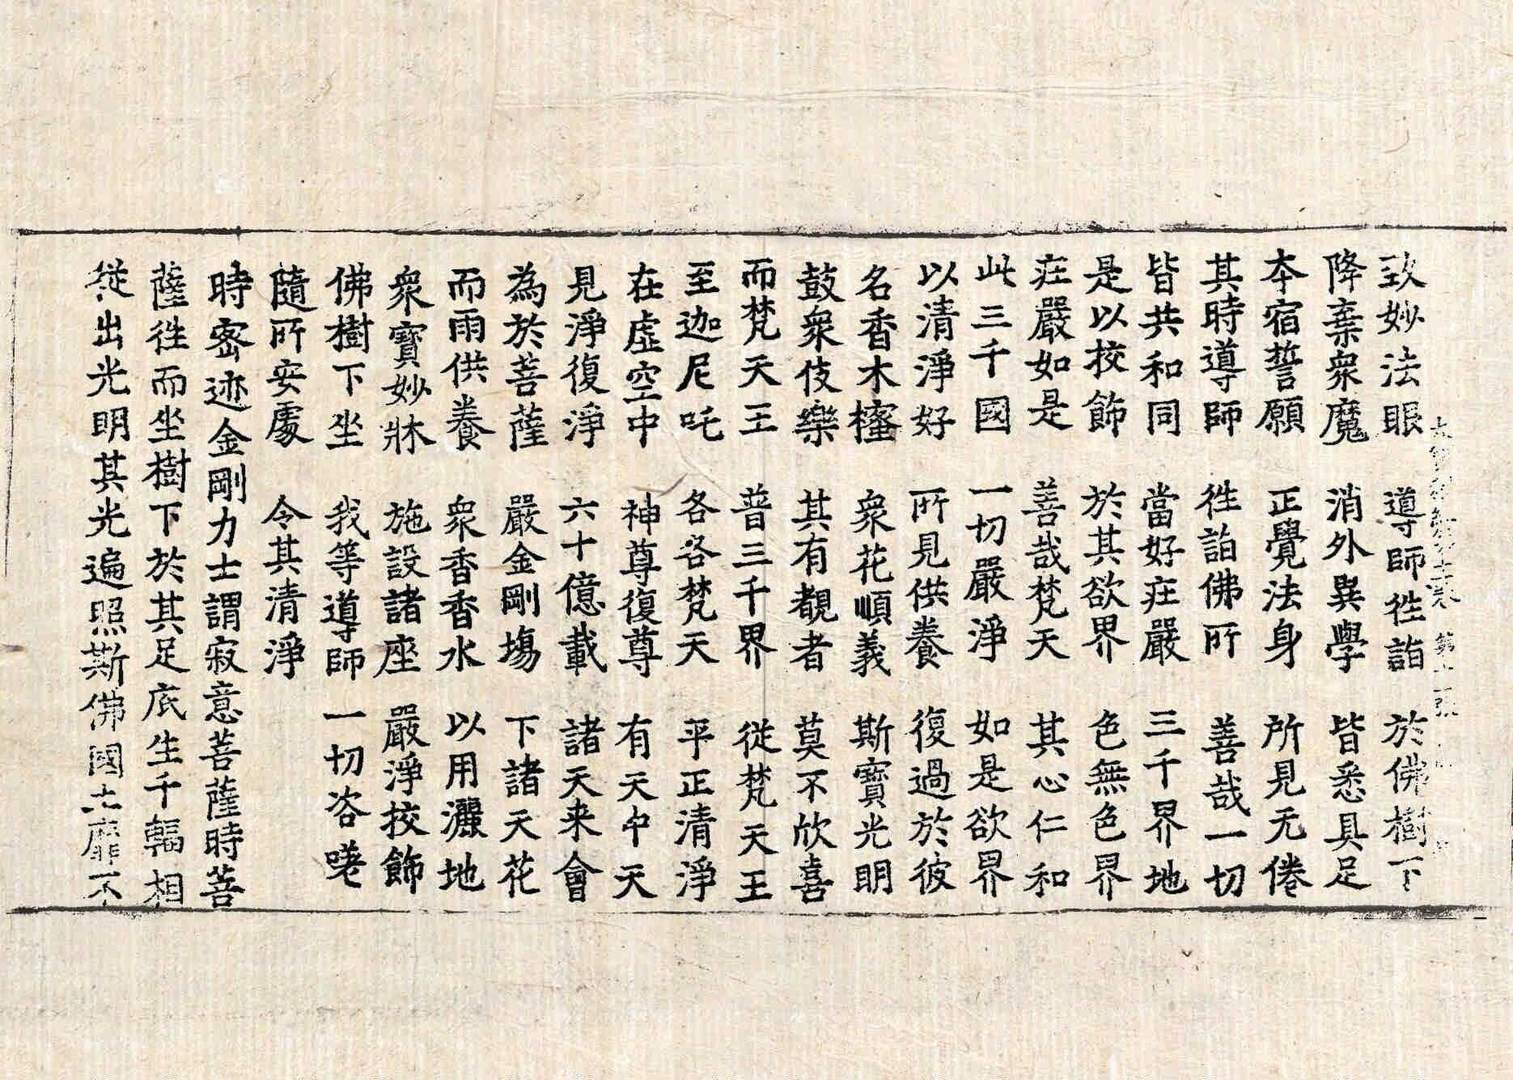 致妙法眼 導師往詣 於佛樹下
降棄衆魔 消外異學 皆悉具足
本宿誓願 正覺法身 所見无倦
其時導師 往詣佛所 善哉一切
皆共和同 當好莊嚴 三千界地
是以校飾 於其欲界 色無色界
莊嚴如是 善哉梵天 其心仁和
此三千國 一切嚴淨 如是欲界
以清淨好 所見供養 復過於彼
名香木櫁 衆花順義 斯寶光明
鼓衆伎樂 其有覩者 莫不欣喜
而梵天王 普三千界 從梵天王
至迦尼吒 各各梵天 平正清淨
在虛空中 神尊復尊 有天中天
見淨復淨 六十億載 諸天来會
為於菩薩 嚴金剛場 下諸天花
而雨供養 衆香香水 以用灑地
衆寶妙牀 施設諸座 嚴淨挍飾
佛樹下坐 我等導師 一切咨嗟
隨所安處 令其清淨
時密迹金剛力士謂寂意菩薩時菩
薩往而坐樹下於其足底生千輻相
從出光明其光遍照斯佛國土靡不